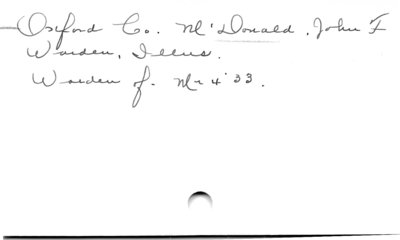 Oxford Co. McDonald, John F
Warden, Illus.
Warden of. Mr 4 '33.